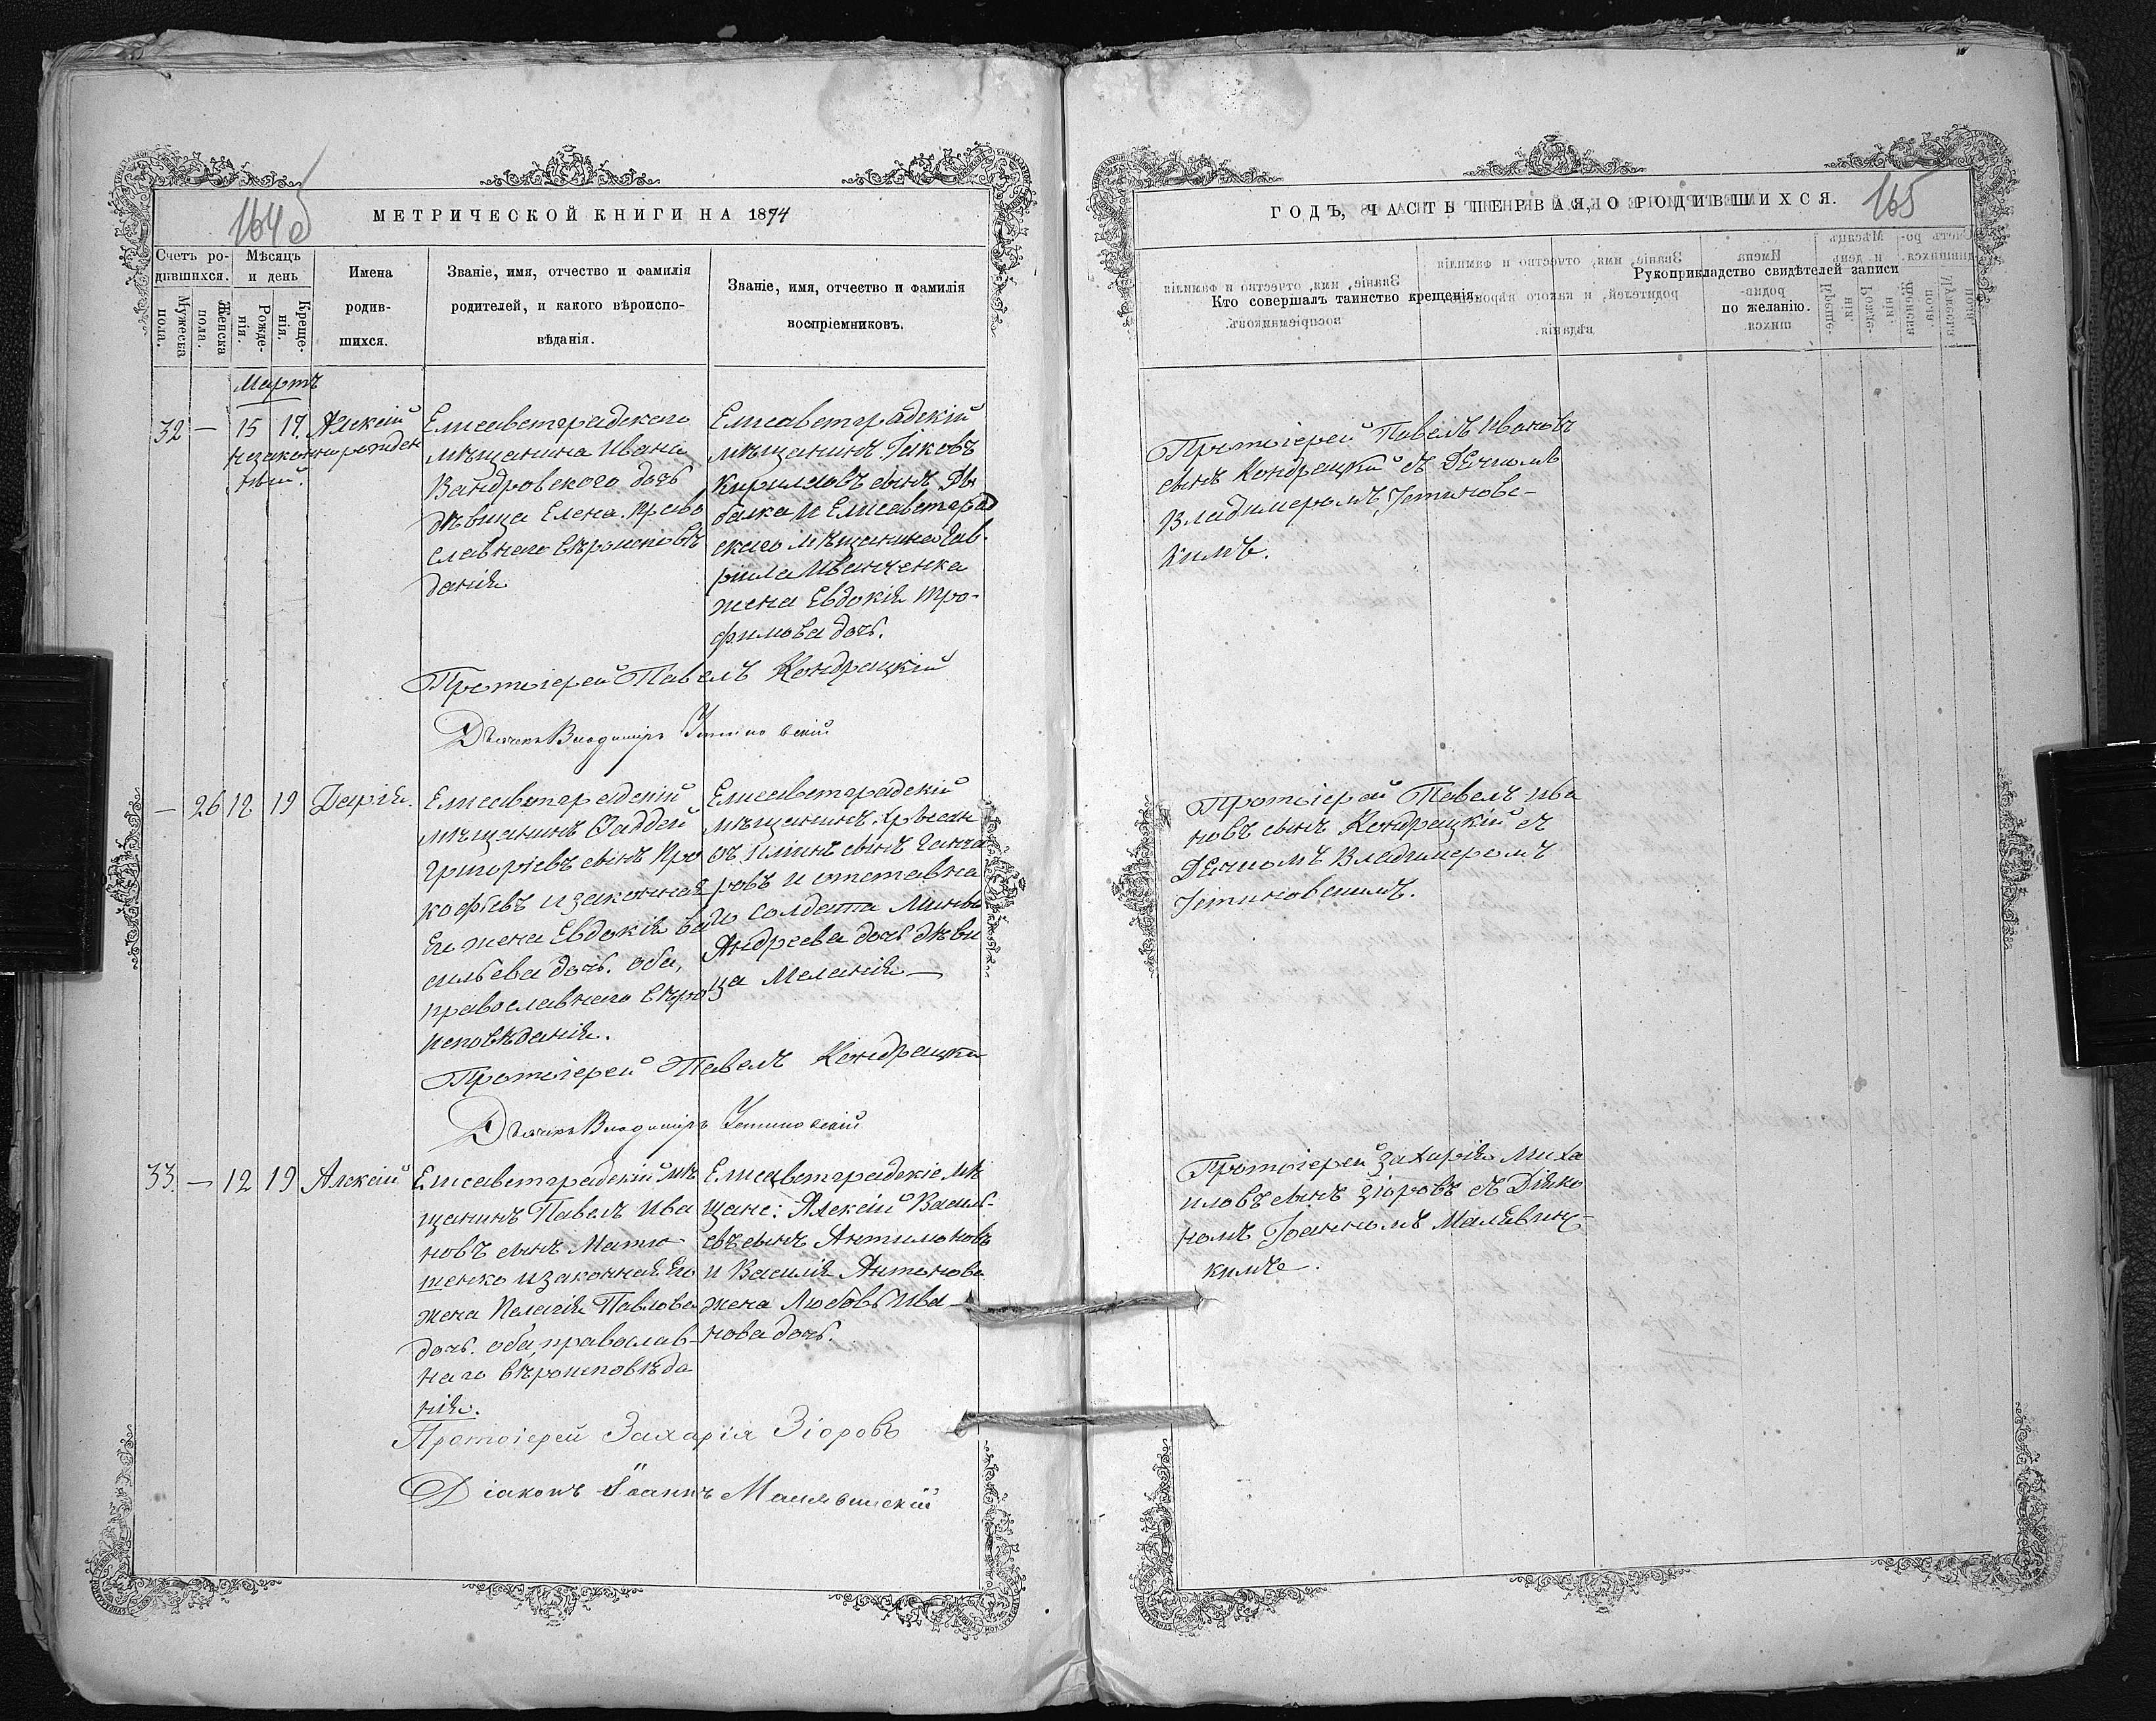 164об
МЕТРИЧЕСКОЙ КНИГИ НА 1874
Счетъ ро-
дившихся.
Мужеска
пола.
Женска
пола.
Мѣсяцъ
и день
Рожде-
нія.
Креще-
нія.
Имена
родив-
шихся.
Званіе, имя, отчество и фамилія
родителей, и какого вѣроиспо-
вѣданія.
Званіе, имя, отчество и фамилія
воспріемниковъ.
Мартъ
32 — 15 17. Алексій
незаконнорожден
ный.
Елисаветградскаго
мѣщанина Ивана
Вандровского дочь
дѣвица Елена. право
славнаго вѣроисповѣ
данія
Елисаветградскій
мѣщанинъ Іаковъ
Кирилловъ сынъ Ды
балка и Елисаветград
скаго мѣщанина Гав-
рила Иванченка
жена Евдокія Тро-
фимова дочь.
Протоіерей Павелъ Кондрацкій
Дьячекъ Владиміръ Устиновскій
— 26 12 19 Дарія.
Елисаветградскій
мѣщанинъ Фаддей
Григорьевъ сынъ Про
кофьевъ и законная
Его жена Евдокія Ва
сильева дочь. оба,
православнаго вѣро
исповѣданія.
Елисаветградскій
мѣщанинъ Хрисан
ѳъ Ильинъ сынъ Ганча
ровъ и отставна
го солдата
Андреева дочь дѣви
ца Меланія —
Протоіерей Павелъ Кондрацкій
Дьячекъ Владиміръ Устиновскій
33. — 12 19 Алексій
Елисаветградскій мѣ
щанинъ Павелъ Ива
новъ сынъ Матю-
шенко и законная Его
жена Пелагія Павлова
дочь. оба, православ-
наго вѣроисповѣда
нія.
Елисаветградскіе мѣ
щане: Алексій Василь-
евъ сынъ Антимоновъ
и Василія Антонова
жена Любовь Ива-
нова дочь.
Протоіерей Захарія Зіоровъ
Діаконъ Іоаннъ Малявинскій
165
ГОДЪ, ЧАСТЬ ПЕРВАЯ, О РОДИВШИХСЯ.
Кто совершалъ таинство крещенія.
Рукоприкладство свидѣтелей записи
по желанію.
Протоіерей Павелъ Ивановъ
сынъ Кондрацкій съ Дьячкомъ
Владимеромъ Устиновс-
кимъ.
Протоіерей Павелъ Ива
новъ сынъ Кондрацкій съ
Дьячкомъ Владимеромъ
Устиновскимъ.
Протоіерей Захарія Миха
иловъ сынъ Зіоровъ съ Діяко
номъ Іоанномъ Малевинс-
кимъ.